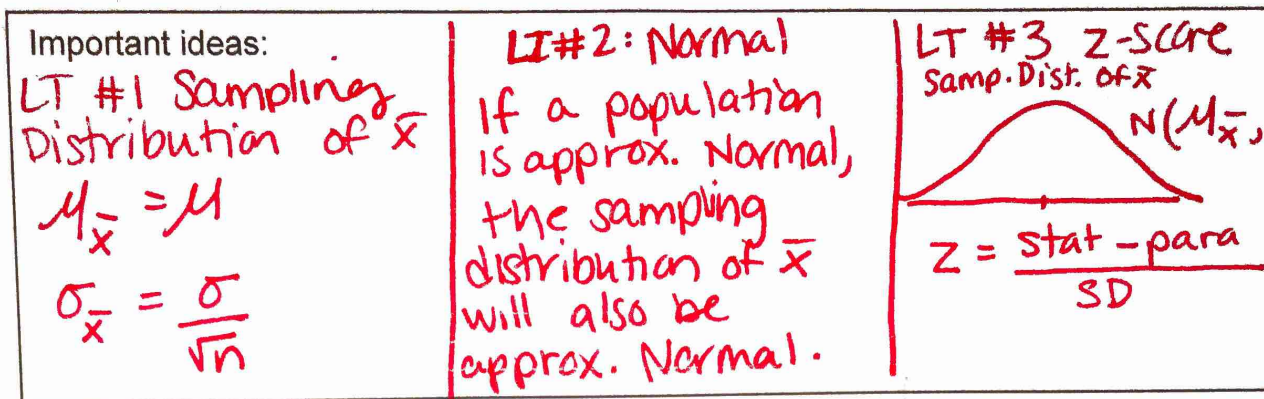 Important ideas:
LT #1 Sampling
Distribution of x̄
μx̄ = μ
σx̄ = σ/√n
LT#2: Normal
If a population
is approx. Normal,
the sampling
distribution of x̄
will also be
approx. Normal.
LT #3 z-score
Samp. Dist. of x̄
N(μx̄,
z = stat - para
SD